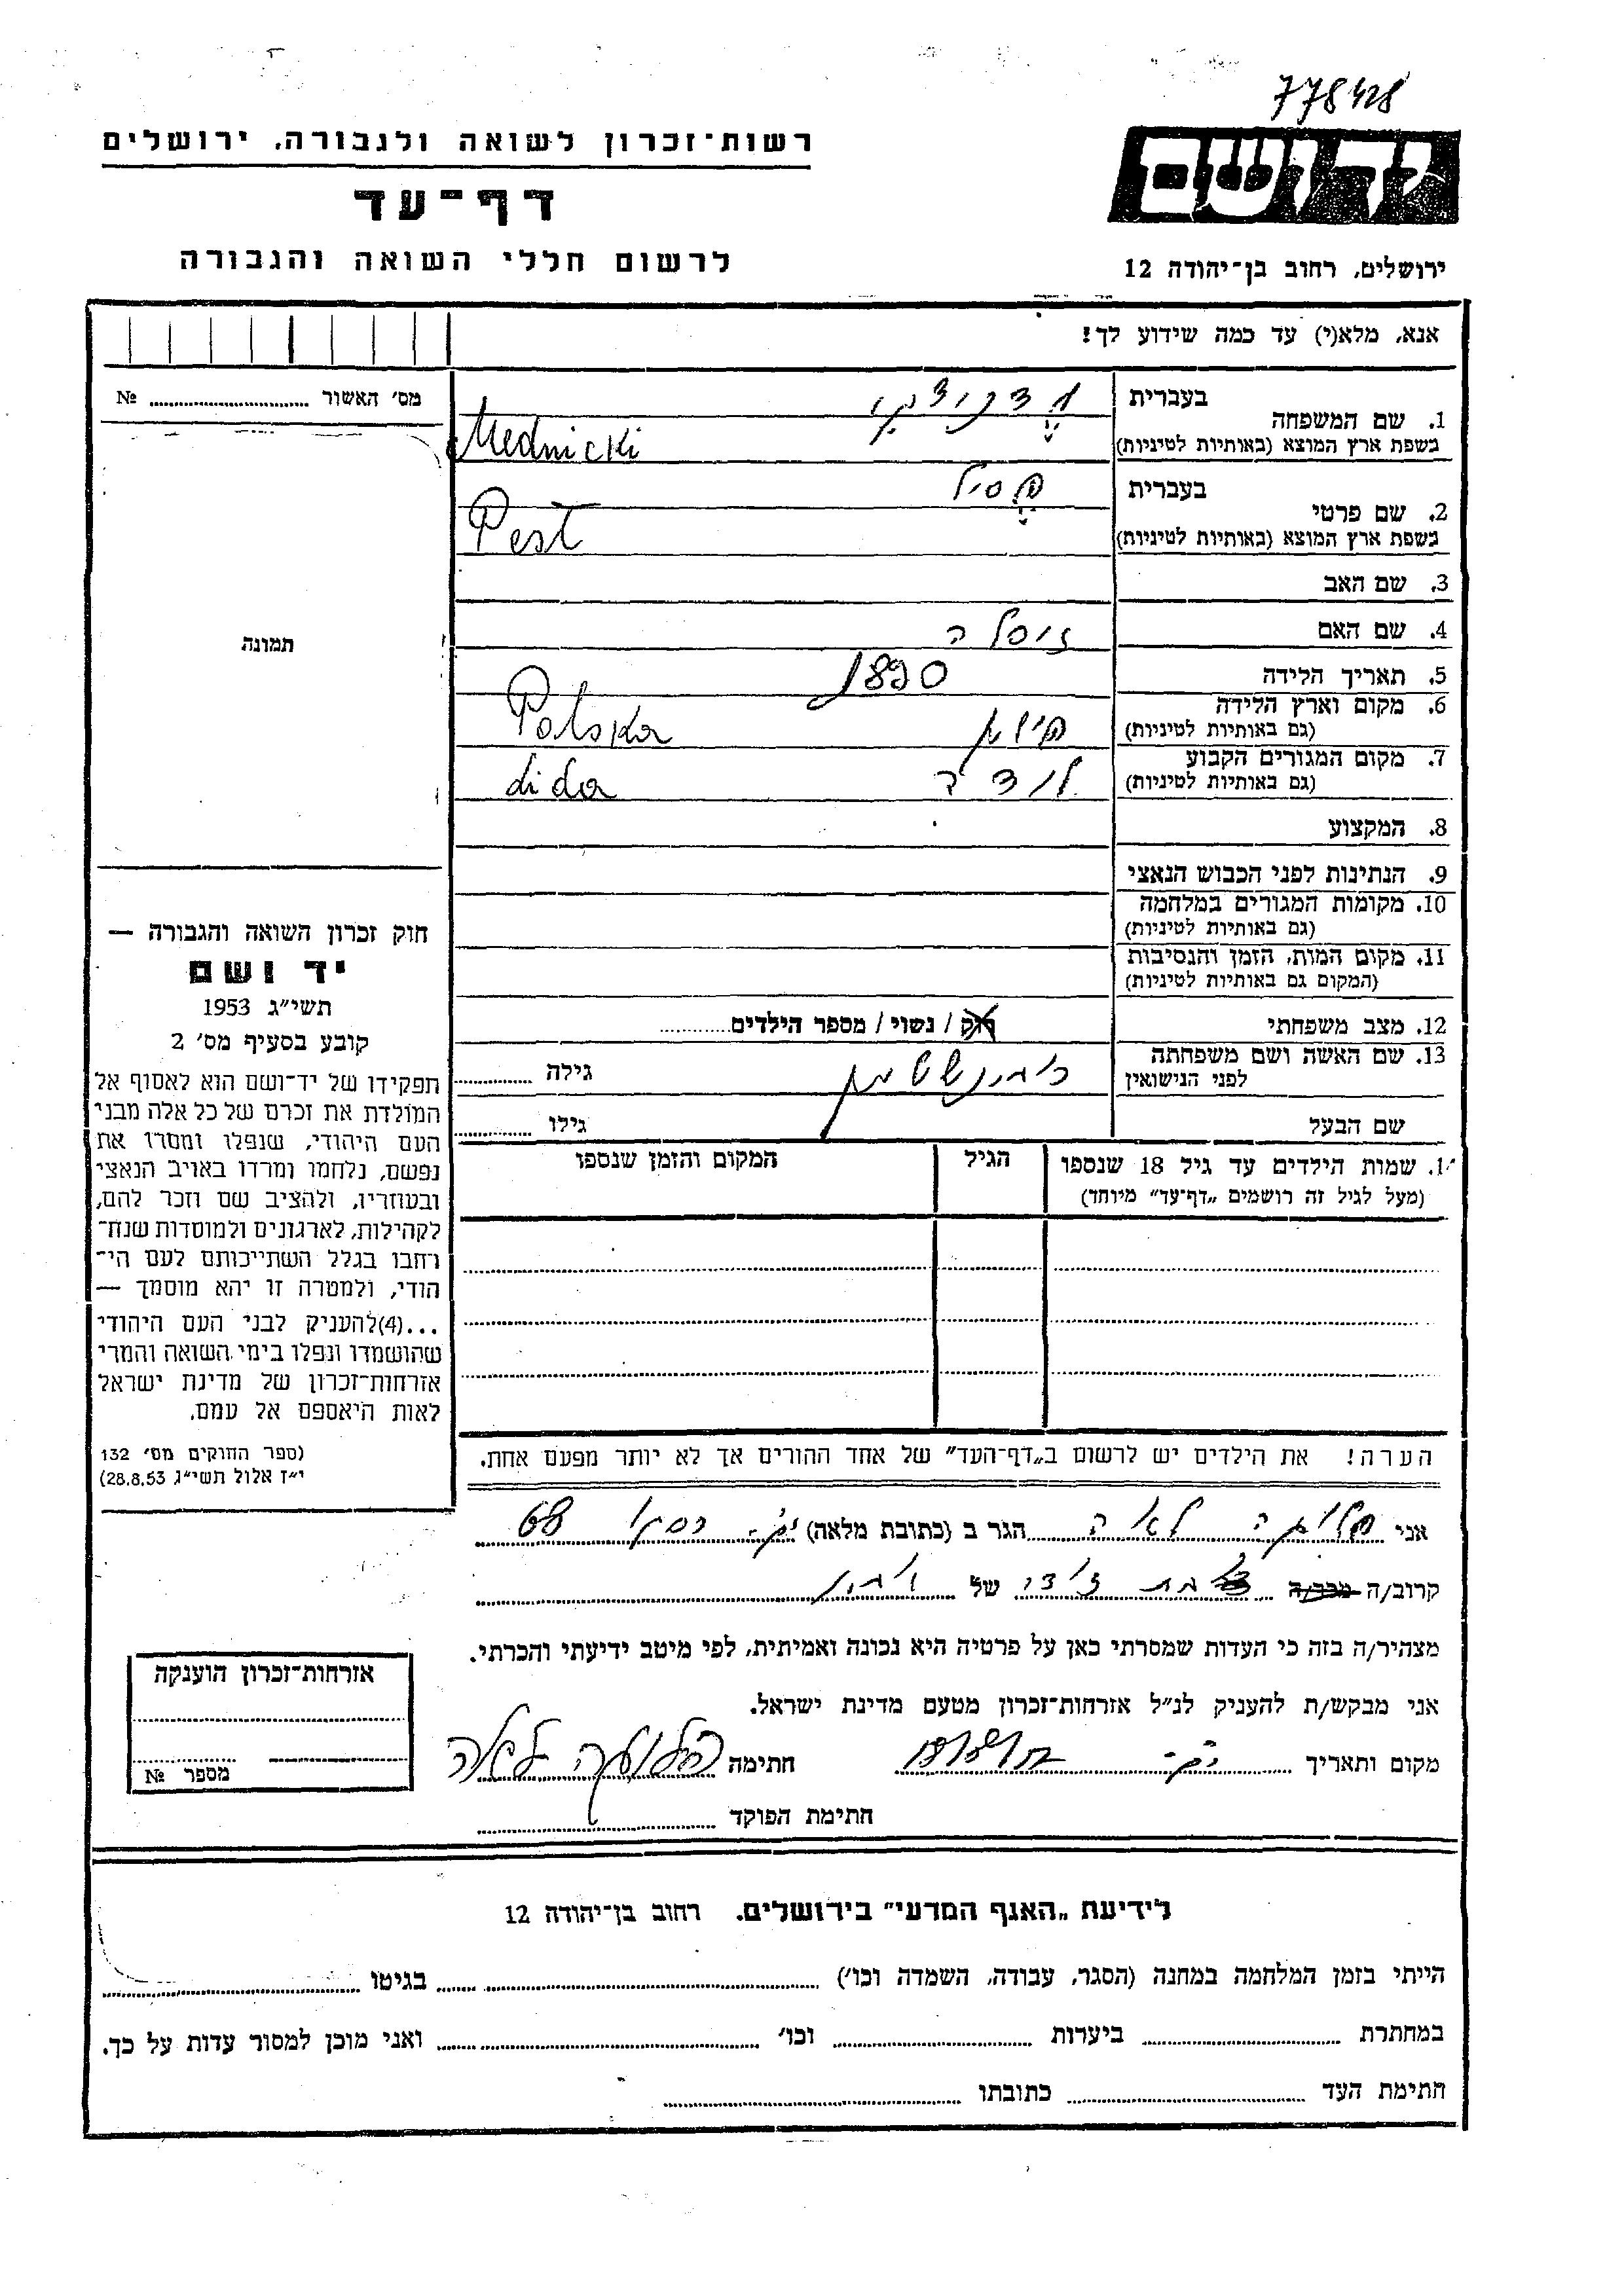 778428
רשות־זכרון לשואה ולגבורה, ירושלים
דף־עד
לרשום חללי השואה והגבורה
ידושם
ירושלים, רחוב בן־יהודה 12
אנא, מלא(י) עד כמה שידוע לך!
מס׳ האשור № 
1. שם המשפחה
בעברית
בשפת ארץ המוצא (באותיות לטיניות) Mednicki
2. שם פרטי
בעברית
בשפת ארץ המוצא (באותיות לטיניות) Pest
3. שם האב
4. שם האם זיסלה
5. תאריך הלידה 1890
6. מקום וארץ הלידה
(גם באותיות לטיניות) Polska
7. מקום המגורים הקבוע
(גם באותיות לטיניות) Lida
8. המקצוע
9. הנתינות לפני הכבוש הנאצי
10. מקומות המגורים במלחמה
(גם באותיות לטיניות)
11. מקום המות, הזמן והנסיבות
(המקום גם באותיות לטיניות)
12. מצב משפחתי רוק / נשוי / מספר הילדים
13. שם האשה ושם משפחתה
לפני הנישואין
גילה
שם הבעל
גילו
14. שמות הילדים עד גיל 18 שנספו
(מעל לגיל זה רושמים „דף־עד” מיוחד)
הגיל
המקום והזמן שנספו
תמונה
חוק זכרון השואה והגבורה —
יד ושם
תשי״ג 1953
קובע בסעיף מס׳ 2
תפקידו של יד־ושם הוא לאסוף אל
המולדת את זכרם של כל אלה מבני
העם היהודי, שנפלו ומסרו את
נפשם, נלחמו ומרדו באויב הנאצי
ובעוזריו, ולהציב שם וזכר להם,
לקהילות, לארגונים ולמוסדות שנח־
רחבו בגלל השתייכותם לעם הי־
הודי, ולמטרה זו יהא מוסמך —
...(4)להעניק לבני העם היהודי
שהושמדו ונפלו בימי השואה והמרי
אזרחות־זכרון של מדינת ישראל
לאות היאספם אל עמם.
(ספר החוקים מס׳ 132
י״ז אלול תשי״ג 28.8.53)
הערה! את הילדים יש לרשום ב„דף־העד” של אחד ההורים אך לא יותר מפעם אחת.
אני לאה הגר ב (כתובת מלאה) 68
קרוב/ה מכר/ה של
מצהיר/ה בזה כי העדות שמסרתי כאן על פרטיה היא נכונה ואמיתית, לפי מיטב ידיעתי והכרתי.
אני מבקש/ת להעניק לנ״ל אזרחות־זכרון מטעם מדינת ישראל.
מקום ותאריך חתימה לאה
חתימת הפוקד
אזרחות־זכרון הוענקה
מספר №
לידיעת „האגף המדעי” בירושלים. רחוב בן־יהודה 12
הייתי בזמן המלחמה במחנה (הסגר, עבודה, השמדה וכו׳) בגיטו
במחתרת ביערות וכו׳ ואני מוכן למסור עדות על כך.
חתימת העד כתובתו